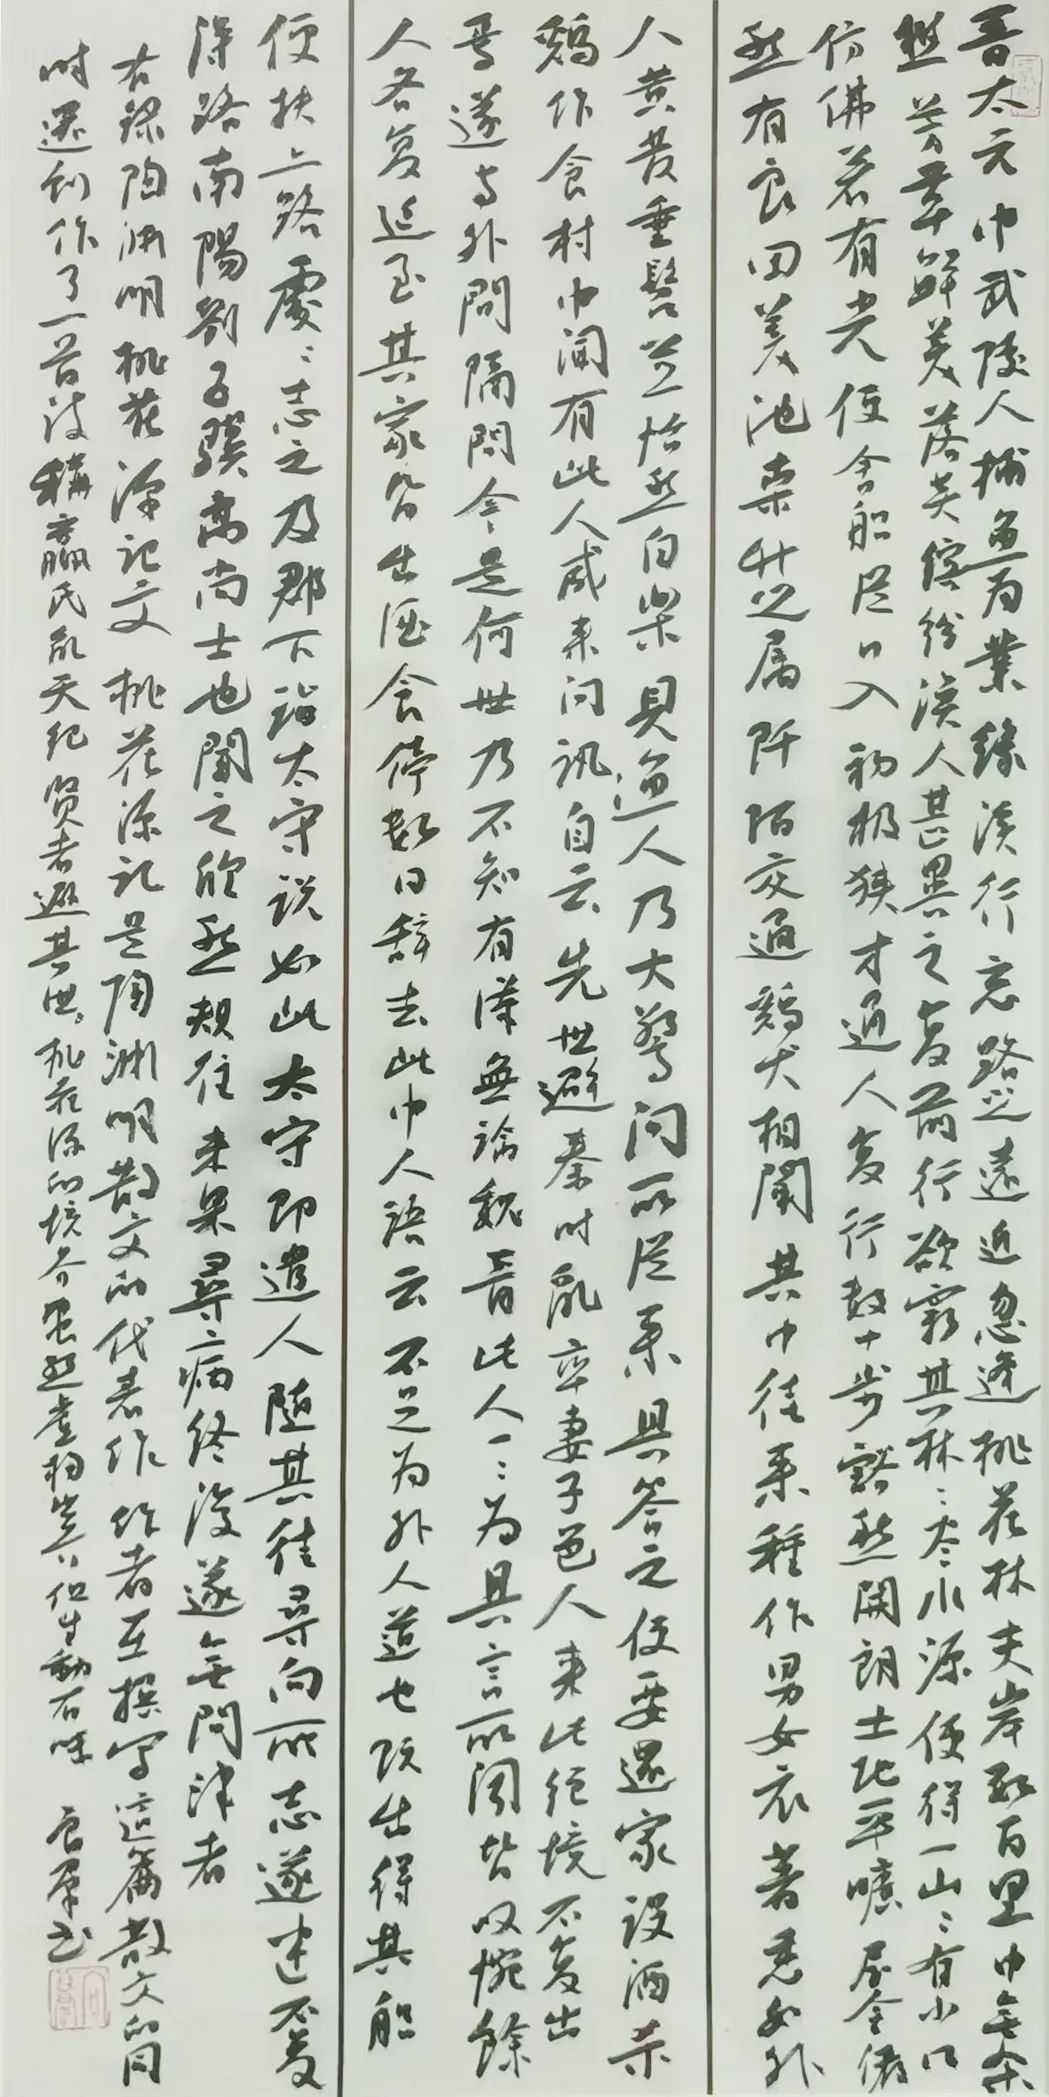 晋太元中武陵人捕鱼为业缘溪行忘路之遠近忽逢桃花林夹岸数百里中無杂
樹芳草鲜美落英缤纷渔人甚異之复前行欲窮其林〻尽水源便得一山〻有小口
仿佛若有光便舍船从口入初极狭才通人复行数十步豁然開朗土地平曠屋舍儼
然有良田美池桑竹之属阡陌交通鷄犬相聞其中往来種作男女衣著悉如外
人黄发垂髫並怡然自樂見渔人乃大驚问所从来具答之便要還家設酒杀
鷄作食村中闻有此人咸来问訊自云先世避秦时乱率妻子邑人来此绝境不复出
焉遂与外間隔問今是何世乃不知有漢無論魏晋此人一〻为具言所闻皆叹惋餘
人各复延至其家皆出酒食停数日辞去此中人語云不足为外人道也既出得其船
便扶上路處〻志之及郡下詣太守説如此太守即遣人随其往尋向所志遂迷不复
得路南陽劉子驥高尚士也聞之欣然規往未果尋病终後遂無問津者
右録陶渊明桃花源記文 桃花源記是陶渊明散文的代表作 作者在撰写這篇散文的同
时還創作了一首诗稱嬴氏乱天纪贤者避其世。桃花源的境界虽然虚构 但生動有味